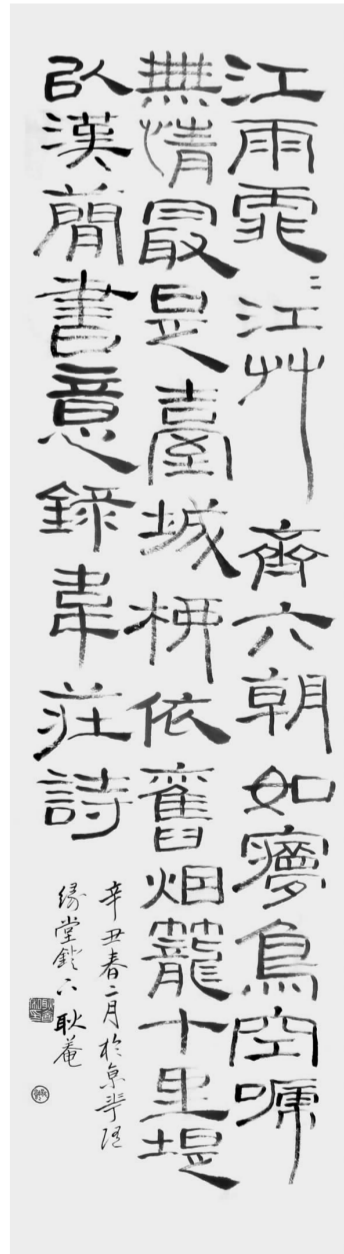 江雨霏〻江艸齊六朝如夢鳥空嗁
無情最是臺城柳依舊烟籠十里堤
以漢簡書意錄韋莊詩
辛丑春二月於京華隨
緣堂鐙下耿菴